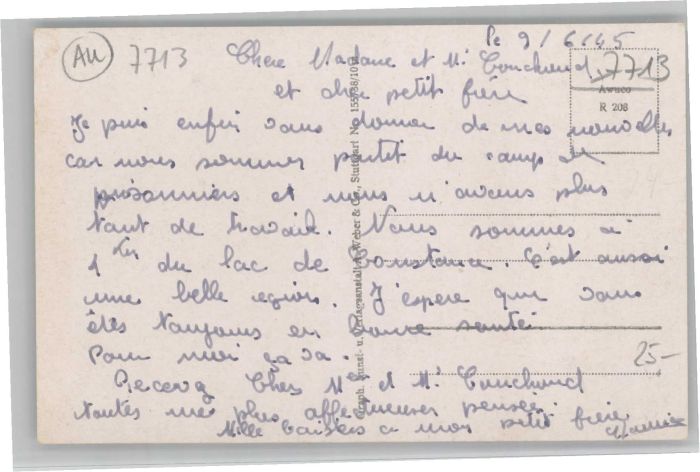 Le 9/6.45
AU 7713 Chere Madame et Mr Couchoud 7713
et cher petit frère
Awuco
R 208
Je puis enfin vous donner de mes nouvelles
car nous sommes partit du camp de
prisonniers et nous n'avons plus
tant de travail. Nous sommes à
1 Km du lac de Constance. C'est aussi
une belle region. J'espere que vous
êtes toujours en bonne santé
Pour moi ça va.
25-
Recevez Chers Me et Mr Couchoud
toutes mes plus affectueuses pensées
Mille baisers a mon petit frère
Graph. Kunst- u. Verlagsanstalt A. Weber & Co., Stuttgart No. 155/38/10